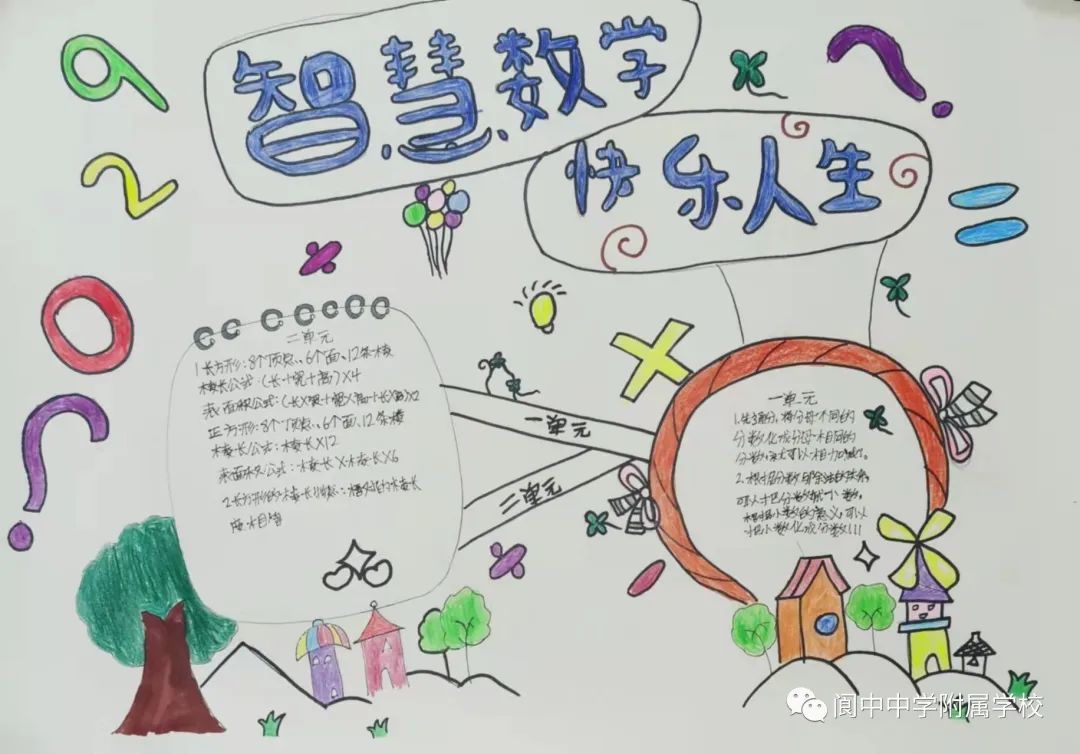 智慧数学
快乐人生
9
2
0
?
?
=
×
二单元
1长方形:8个顶点、6个面、12条棱
棱长公式:(长+宽+高)×4
表面积公式:(长×宽+宽×高+长×高)×2
正方形:8个顶点、6个面、12条棱
棱长公式:棱长×12
表面积公式:棱长×棱长×6
2.长方形的棱长
度相等
一单元
二单元
一单元
1.生通分,将分母不同的
分数化成分母相同的
分数,就可以相加减了。
2.根据分数与除法的关系,
可以把分数化小数,
根据小数的意义,可以
把小数化成分数!!!
阆中中学附属学校